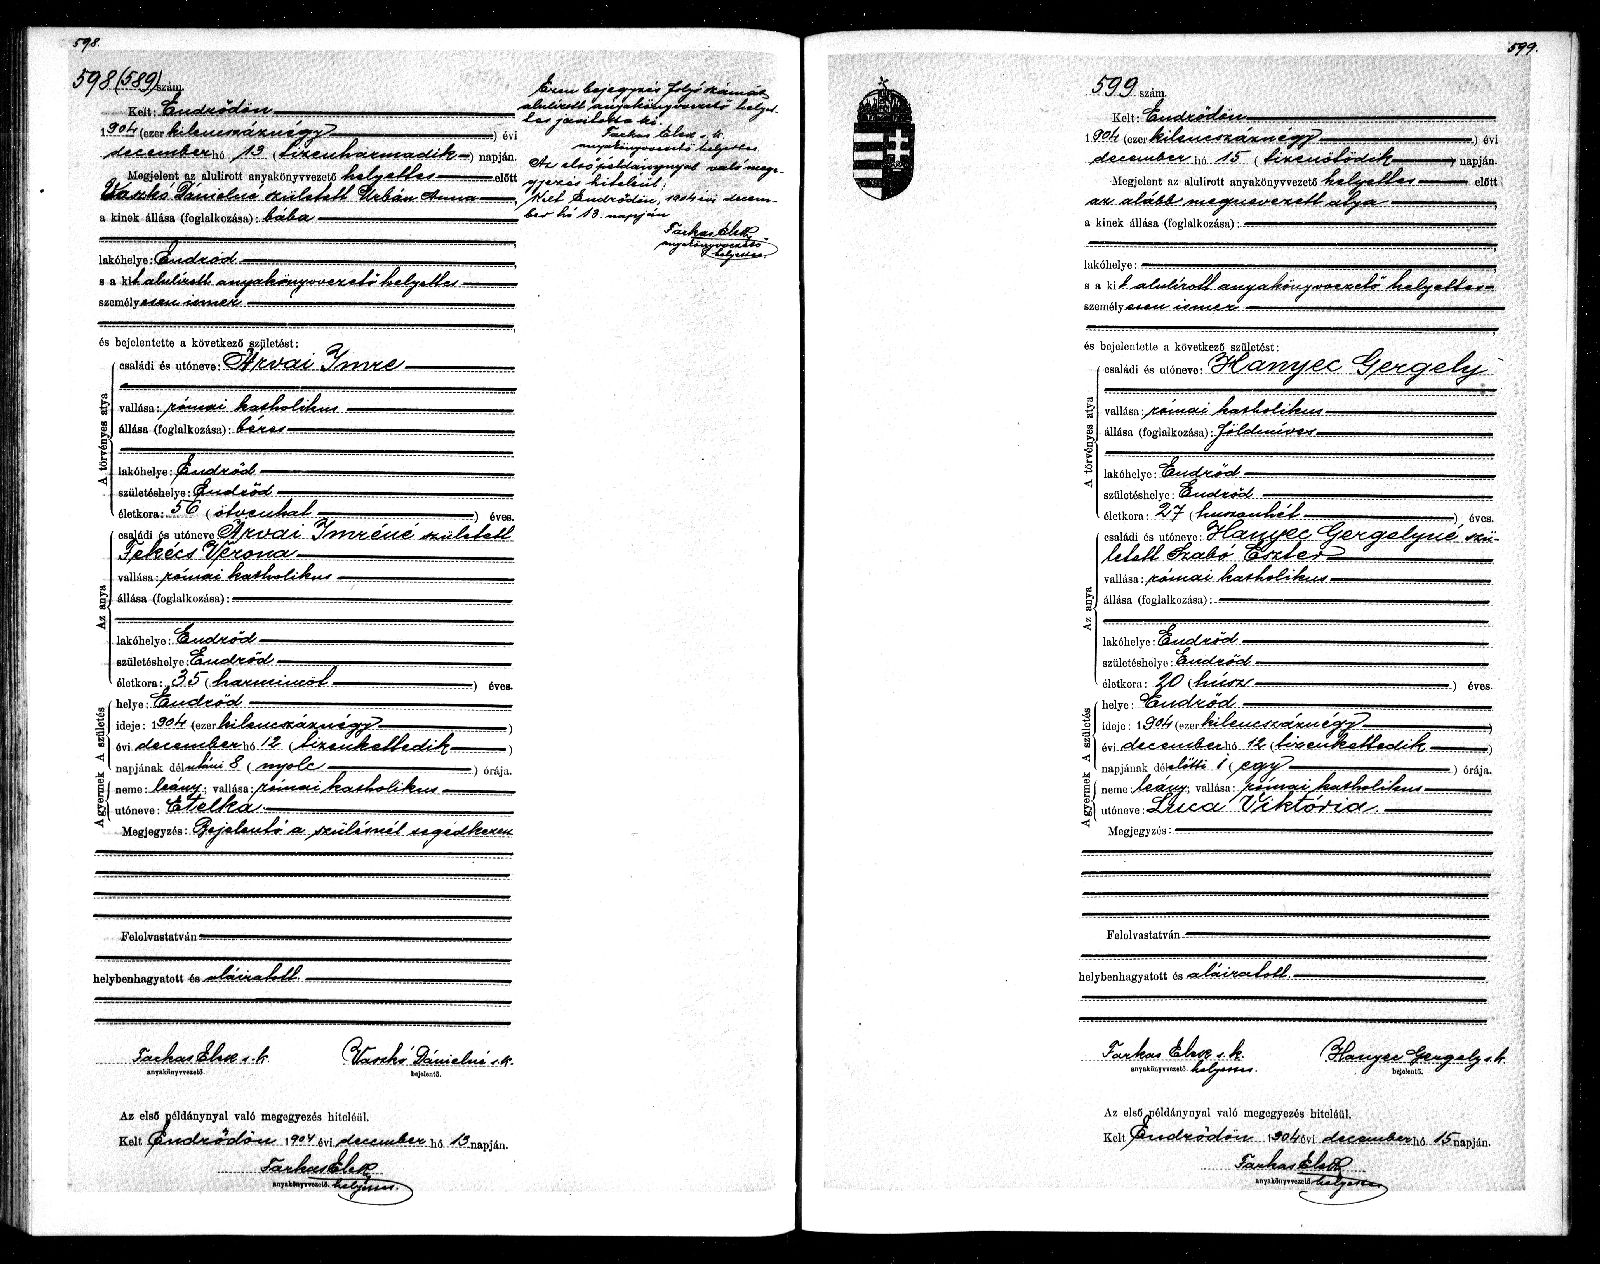 598.
598 (589) szám.
Kelt: Endrődön
1904 (ezer kilenczáznégy) évi
december hó 13 (tizenharmadik) napján.
Megjelent az alulirott anyakönyvvezető helyettes előtt
Vaszkó Dánielné született Urbán Anna
a kinek állása (foglalkozása): bába
lakóhelye: Endrőd
s a kit alulirott anyakönyvvezető helyettes
személyesen ismer
és bejelentette a következő születést:
A törvényes atya
családi és utóneve: Árvai Imre
vallása: római katholikus
állása (foglalkozása): béres
lakóhelye: Endrőd
születéshelye: Endrőd
életkora: 56 (ötvenhat) éves.
Az anya
családi és utóneve Árvai Imréné született
Fekécs Verona
vallása: római katholikus
állása (foglalkozása):
lakóhelye: Endrőd
születéshelye: Endrőd
életkora: 35 (harminöt) éves.
A születés
helye: Endrőd
ideje: 1904 (ezer kilenczáznégy)
évi december hó 12 (tizenkettedik)
napjának délutáni 8 (nyolc) órája.
A gyermek
neme: leány; vallása: római katholikus
utóneve: Etelka
Megjegyzés: Bejelentő a szülésnél segédkezett
Felolvastatván
helybenhagyatott és aláiratott.
Farkas Elek s. k. Vaszkó Dánielné s. k.
anyakönyvvezető. bejelentő.
Az első példánynyal való megegyezés hiteléül.
Kelt Endrődön 1904 évi december hó 13 napján.
Farkas Elek
anyakönyvvezető. helyettes.
Ezen bejegyzés folyószámát
alulirott anyakönyvvezető helyet-
tes javította ki.
Farkas Elek s. k.
anyakönyvvezető helyettes.
Az első példánynyal való mege-
gyezés hiteléül;
Kelt Endrődön, 1904 évi decem-
ber hó 13. napján
Farkas Elek
anyakönyvvezető
helyettes.
599.
599 szám.
Kelt: Endrődön
1904 (ezer kilenczáznégy) évi
december hó 15 (tizenötödik) napján.
Megjelent az alulirott anyakönyvvezető helyettes előtt
az alább megnevezett atya
a kinek állása (foglalkozása):
lakóhelye:
s a kit alulirott anyakönyvvezető helyettes
személyesen ismer
és bejelentette a következő születést:
A törvényes atya
családi és utóneve: Hanyec Gergely
vallása: római katholikus
állása (foglalkozása): földmíves
lakóhelye: Endrőd
születéshelye: Endrőd
életkora: 27 (huszonhét) éves.
Az anya
családi és utóneve: Hanyec Gergelyné szü-
letett Szabó Eszter
vallása: római katholikus
állása (foglalkozása):
lakóhelye: Endrőd
születéshelye: Endrőd
életkora: 20 (húsz) éves.
A születés
helye: Endrőd
ideje: 1904 (ezer kilenczáznégy)
évi december hó 12 (tizenkettedik)
napjának délelőtti 1 (egy) órája.
A gyermek
neme: leány; vallása: római katholikus
utóneve: Luca Viktória
Megjegyzés:
Felolvastatván
helybenhagyatott és aláiratott.
Farkas Elek s. k. Hanyec Gergely s. k.
anyakönyvvezető. helyettes. bejelentő.
Az első példánynyal való megegyezés hiteléül.
Kelt Endrődön 1904 évi december hó 15 napján.
Farkas Elek
anyakönyvvezető. helyettes.